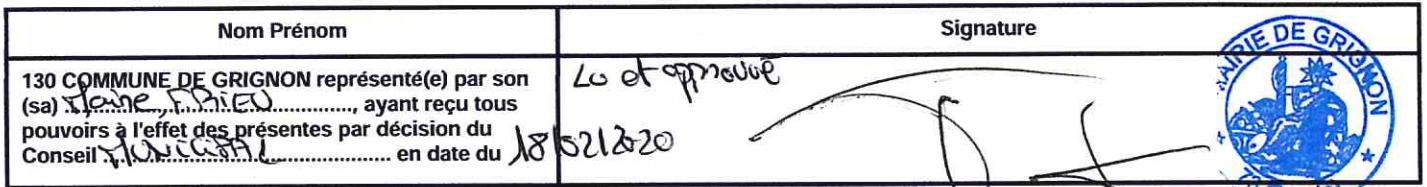 Nom Prénom
Signature
130 COMMUNE DE GRIGNON représenté(e) par son
(sa) Maire, F. RIEU, ayant reçu tous
pouvoirs à l'effet des présentes par décision du
Conseil MUNICIPAL en date du 18/02/2020
Lu et approuvé
MAIRIE DE GRIGNON